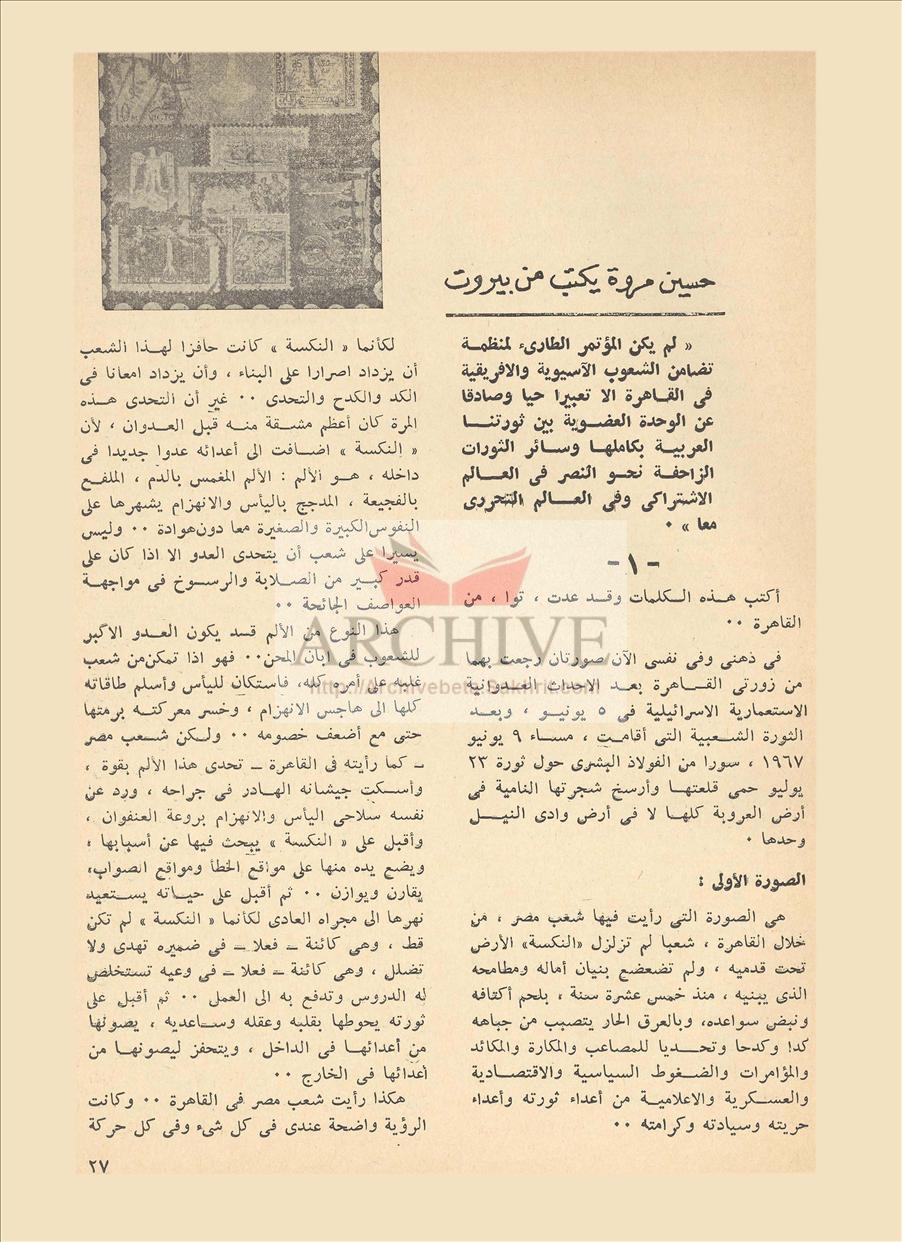 حسين مروة يكتب من بيروت
« لم يكن المؤتمر الطارىء لمنظمة
تضامن الشعوب الآسيوية والافريقية
فى القاهرة الا تعبيرا حيا وصادقا
عن الوحدة العضوية بين ثورتنا
العربية بكاملها وسائر الثورات
الزاحفة نحو النصر فى العالم
الاشتراكى وفى العالم التحررى
معا » ٠
- ١ -
أكتب هذه الكلمات وقد عدت ، توا ، من
القاهرة ٠٠
فى ذهنى وفى نفسى الآن صورتان رجعت بهما
من زورتى القاهرة بعد الاحداث العدوانية
الاستعمارية الاسرائيلية فى ٥ يونيو ، وبعد
الثورة الشعبية التى أقامت ، مساء ٩ يونيو
١٩٦٧ ، سورا من الفولاذ البشرى حول ثورة ٢٣
يوليو حمى قلعتها وأرسخ شجرتها النامية فى
أرض العروبة كلها لا فى أرض وادى النيل
وحدها ٠
الصورة الأولى :
هى الصورة التى رأيت فيها شعب مصر ، من
خلال القاهرة ، شعبا لم تزلزل «النكسة» الأرض
تحت قدميه ، ولم تضعضع بنيان أماله ومطامحه
الذى يبنيه ، منذ خمس عشرة سنة ، بلحم أكتافه
ونبض سواعده، وبالعرق الحار يتصبب من جباهه
كدا وكدحا وتحديا للمصاعب والمكارة والمكائد
والمؤامرات والضغوط السياسية والاقتصادية
والعسكرية والاعلامية من أعداء ثورته وأعداء
حريته وسيادته وكرامته ٠٠
لكأنما « النكسة » كانت حافزا لهذا الشعب
أن يزداد اصرارا على البناء ، وأن يزداد امعانا فى
الكد والكدح والتحدى ٠٠ غير أن التحدى هذه
المرة كان أعظم مشقة منه قبل العدوان ، لأن
« النكسة » اضافت الى أعدائه عدوا جديدا فى
داخله ، هو الألم : الألم المغمس بالدم ، الملفع
بالفجيعة ، المدجج باليأس والانهزام يشهرها على
النفوس الكبيرة والصغيرة معا دون هوادة ٠٠ وليس
يسيرا على شعب أن يتحدى العدو الا اذا كان على
قدر كبير من الصلابة والرسوخ فى مواجهة
العواصف الجائحة ٠٠
هذا النوع من الألم قد يكون العدو الاكبر
للشعوب فى ابان المحن٠٠ فهو اذا تمكن من شعب
غلبه على أمره كله، فاستكان لليأس وأسلم طاقاته
كلها الى هاجس الانهزام ، وخسر معركته برمتها
حتى مع أضعف خصومه ٠٠ ولكن شعب مصر
ـ كما رأيته فى القاهرة ـ تحدى هذا الألم بقوة ،
وأسكت جيشانه الهادر فى جراحه ، ورد عن
نفسه سلاحى اليأس والانهزام بروعة العنفوان ،
وأقبل على « النكسة » يبحث فيها عن أسبابها ،
ويضع يده منها على مواقع الخطأ ومواقع الصواب،
يقارن ويوازن ٠٠ ثم أقبل على حياته يستعيد
نهرها الى مجراه العادى لكأنما « النكسة » لم تكن
قط ، وهى كائنة ـ فعلا ـ فى ضميره تهدى ولا
تضلل ، وهى كائنة ـ فعلا ـ فى وعيه تستخلص
له الدروس وتدفع به الى العمل ٠٠ ثم أقبل على
ثورته يحوطها بقلبه وعقله وساعديه ، يصونها
من أعدائها فى الداخل ، ويتحفز ليصونها من
أعدائها فى الخارج ٠٠
هكذا رأيت شعب مصر فى القاهرة ٠٠ وكانت
الرؤية واضحة عندى فى كل شىء وفى كل حركة
٢٧
ARCHIVE